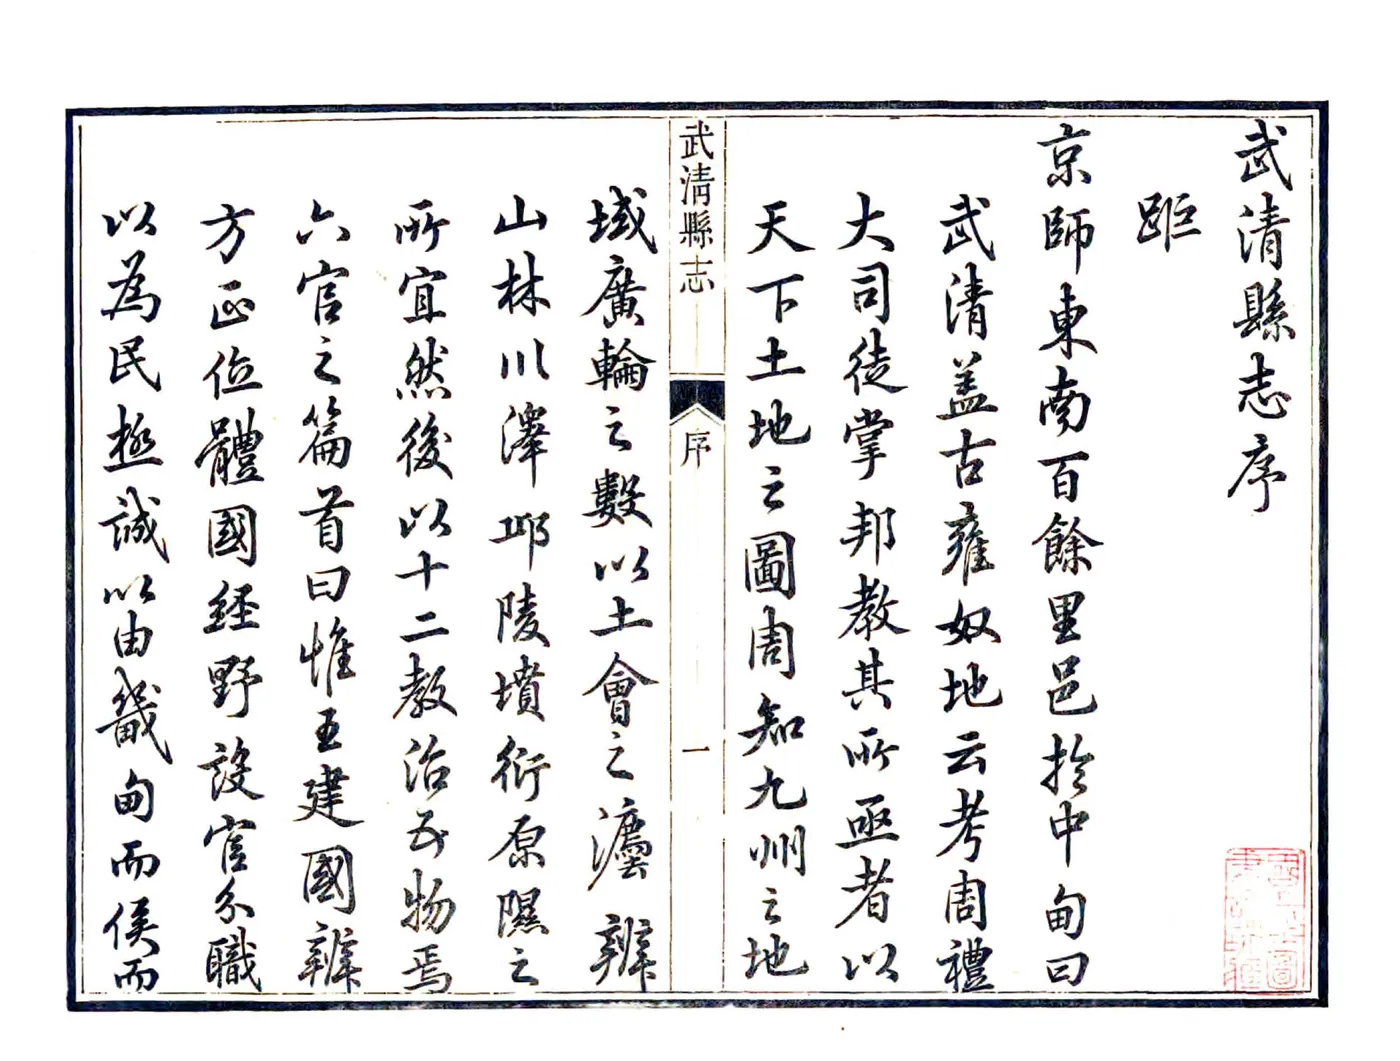 武清縣志序
距
京師東南百餘里邑扵中甸曰
武清盖古雍奴地云考周禮
大司徒掌邦教其所亟者以
天下土地之圖周知九州之地
武清縣志
序
一
域廣輪之數以土會之灋辨
山林川澤邱陵墳衍原隰之
所宜然後以十二教治五物焉
六官之篇首曰惟王建國辨
方正位體國經野設官分職
以為民極誠以由畿甸而侯而